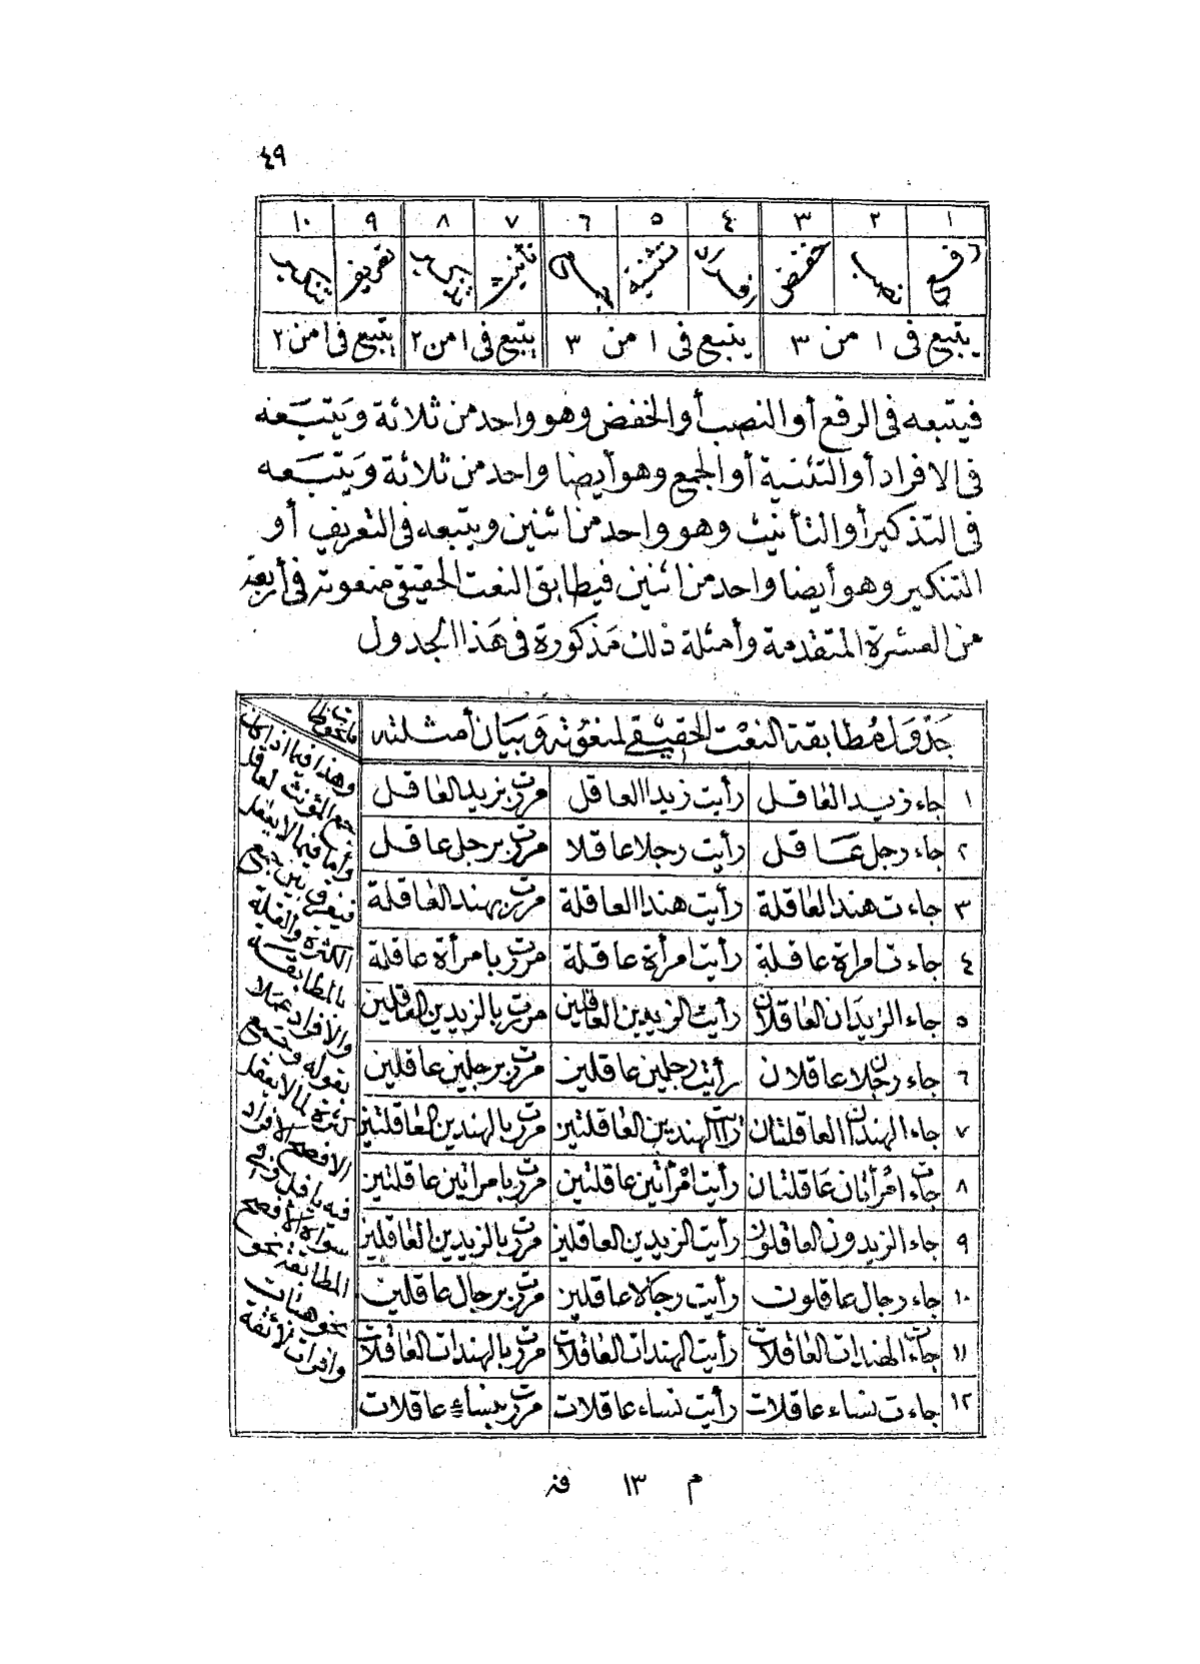 ٤٩
١ ٢ ٣ ٤ ٥ ٦ ٧ ٨ ٩ ١٠
رفع نصب خفض افراد تثنية جمع تأنيث تذكير تعريف تنكير
يتبع فى ١ من ٣ يتبع فى ١ من ٣ يتبع فى ١ من ٢ يتبع فى ١ من ٢
فيتبعه فى الرفع أو النصب أو الخفض وهو واحد من ثلاثة وَيَتبَعه
فى الافراد أو التثنية أو الجمع وهو أيضا واحد من ثلاثة وَيَتبَعه
فى التذكير أو التأنيث وهو واحد من اثنين ويتبعه فى التعريف أو
التنكير وهو أيضا واحد من اثنين فيطابق النعت الحقيقى منعوته فى أربعة
من العشرة المتقدمة وأمثلة ذلك مَذكورة فى هَذا الجدول
جَدْوَل مُطابقة النعْت الحَقِيْقى لمنعُوته وَبيَان أمثلته
١ جاء زيد العاقل رأيت زيدا العاقل مررت بزيد العاقل
٢ جاء رجل عَاقل رأيت رجلا عاقلا مررت برجل عاقل
٣ جاءت هند العاقلة رأيت هندا العاقلة مررت بهند العاقلة
٤ جاءت امراة عاقلة رأيت امرأة عاقلة مررت بامرأة عاقلة
٥ جاء الزيدان العاقلان رأيت الزيدين العاقلين مررت بالزيدين العاقلين
٦ جاء رجلان عاقلان رأيت رجلين عاقلين مررت برجلين عاقلين
٧ جاء الهندان العاقلتان رأيت الهندين العاقلتين مررت بالهندين العاقلتين
٨ جاءت امْرأتان عَاقلتان رأيت امْرأتين عاقلتين مررت بامراتين عاقلتين
٩ جاء الزيدون العاقلون رأيت الزيدين العاقلين مررت بالزيدين العاقلين
١٠ جاء رجال عاقلون رأيت رجالا عاقلين مررت برجال عاقلين
١١ جاءت الهندات العاقلات رأيت الهندات العاقلات مررت بالهندات العاقلات
١٢ جاءت نساء عاقلات رأيت نساء عاقلات مررت بنساء عاقلات
وهذا فيما اذا كان
جمع المؤنث لعاقل
وأما فيما لا يعقل
فيفرق بين جمعى
الكثرة والقلة
بالمطابقة
والأفراد عملا
بقوله وجمع
كثرة لما لا يعقل
الافصح الافراد
فيه يا فل وفى
سواه الأفصح
المطابقة نحو
نحو هبات
وافرات لائقة
م ١٣ فنـ